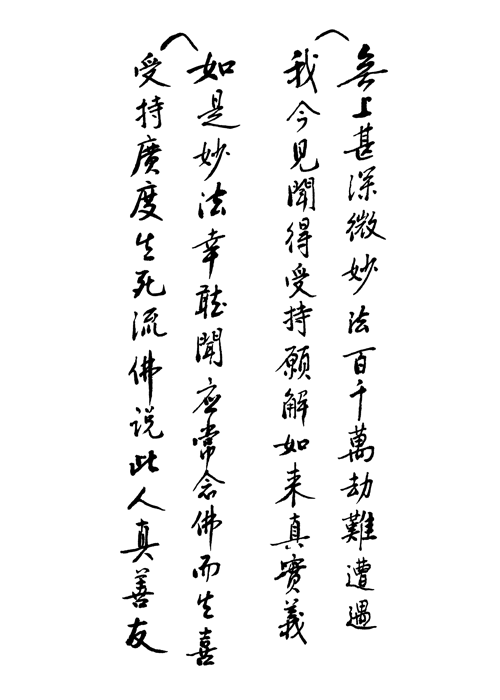 無上甚深微妙法百千萬劫難遭遇
我今見聞得受持願解如来真實義
如是妙法幸聴聞應常念佛而生喜
受持廣度生死流佛説此人真善友